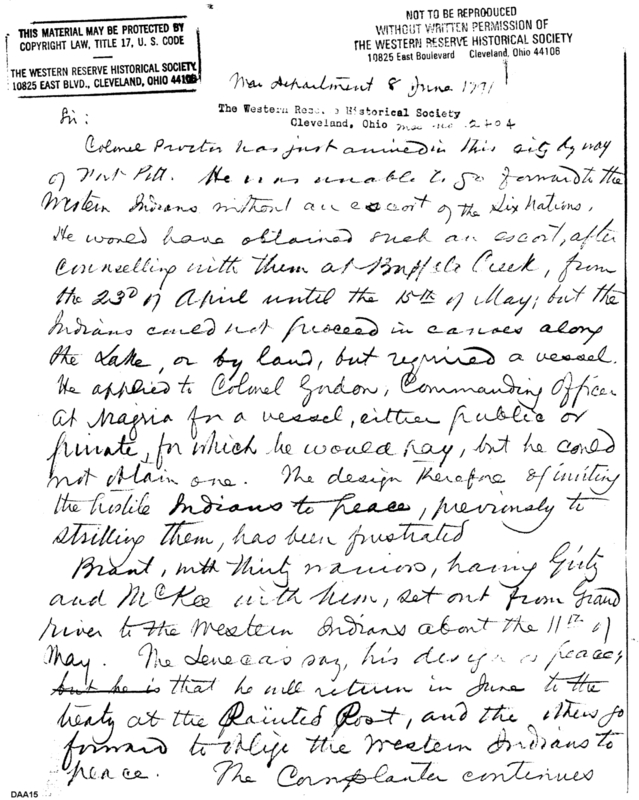 THIS MATERIAL MAY BE PROTECTED BY
COPYRIGHT LAW, TITLE 17, U. S. CODE
THE WESTERN RESERVE HISTORICAL SOCIETY,
10825 EAST BLVD., CLEVELAND, OHIO 44106
NOT TO BE REPRODUCED
WITHOUT WRITTEN PERMISSION OF
THE WESTERN RESERVE HISTORICAL SOCIETY
10825 East Boulevard Cleveland, Ohio 44106
War Department 8 June 1791
The Western Reserve Historical Society
Cleveland, Ohio mss no. 2404
Sir:
Colonel Proctor has just arrived in this city by way
of Fort Pitt. He was unable to go forward to the
Western Indians without an escort of the Six Nations.
He would have obtained such an escort, after
councelling with them at Buffelo Creek, from
the 23d of April until the 15th of May; but the
Indians could not proceed in canoes along
the Lake, or by land, but required a vessel.
He applied to Colonel Gordon, Commanding Officer
at Niagria for a vessel, either public or
private, for which he would pay, but he could
not obtain one. The design therefore of inviting
the hostile Indians to peace, previously to
striking them, has been frustrated
Brant, with thirty warriors, having Girty
and McKee with them, set out from Grand
river to the Western Indians about the 11th of
May. The Seneca's say, his design is peace;
but he is that he will return in June to the
treaty at the Painted Post, and the others go
forward to oblige the Western Indians to
peace. The Cornplanter continues
DAA15